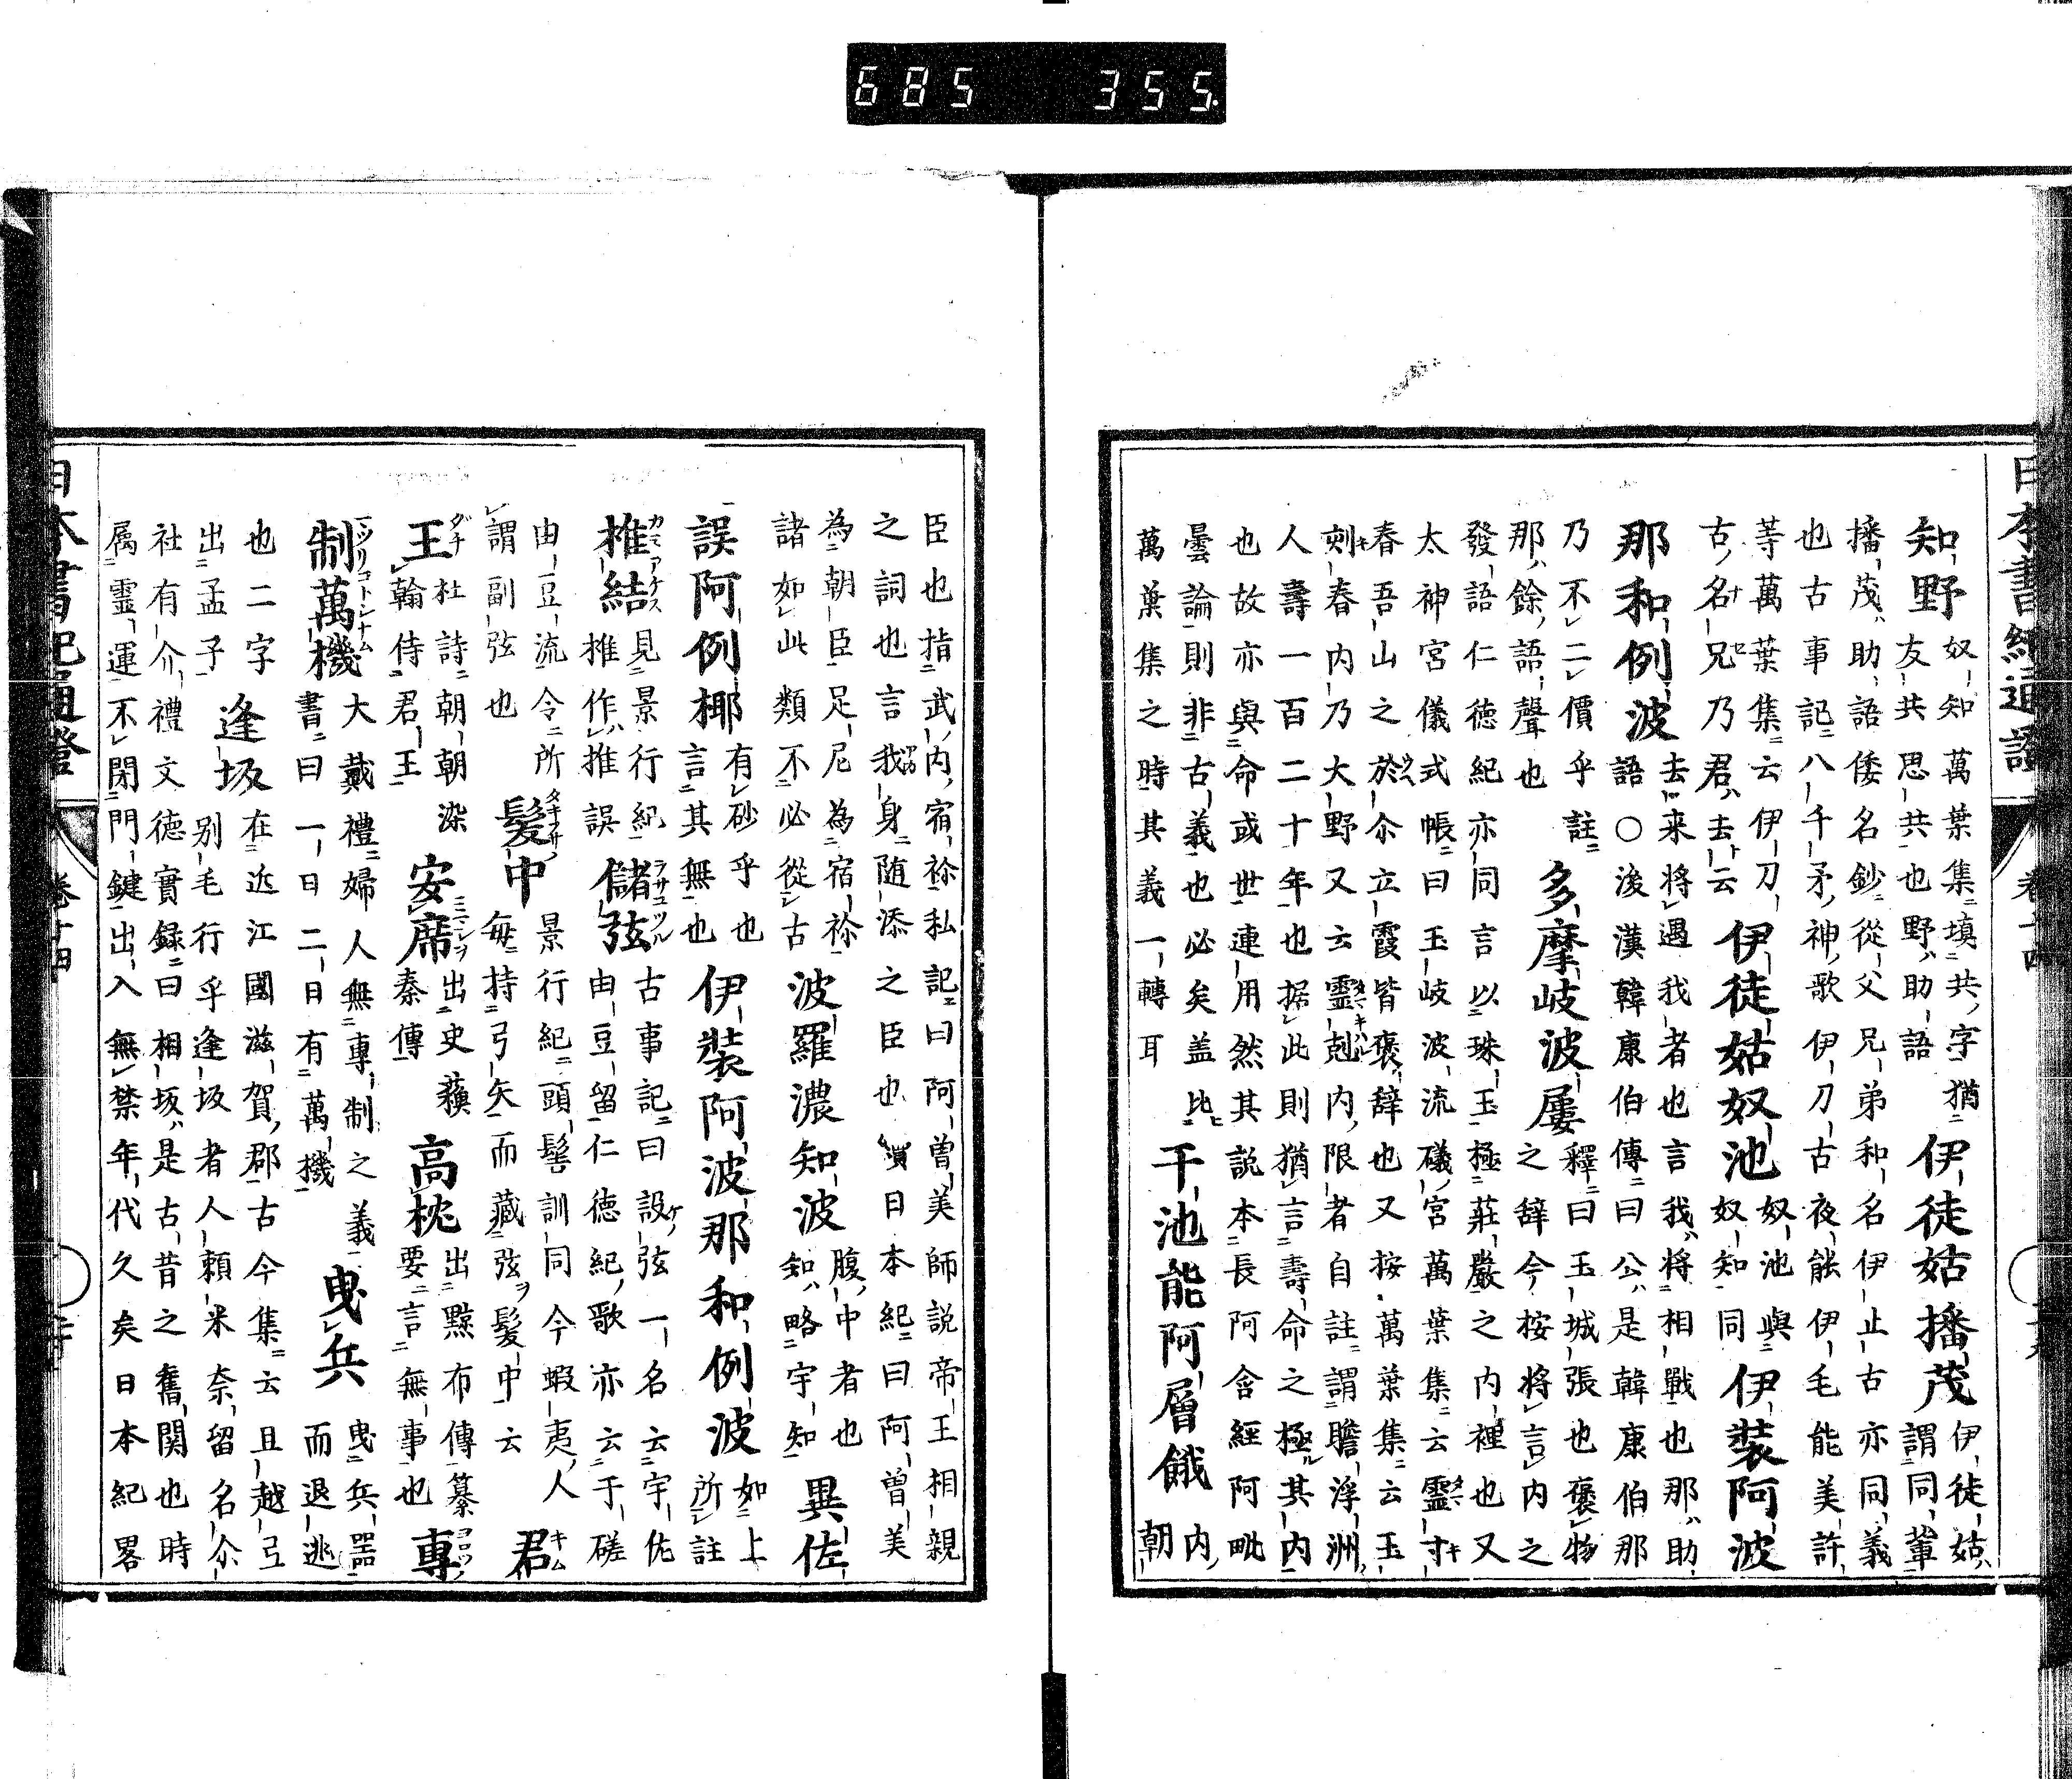 685 355
知野 奴知萬葉集填共字猶
友共思共也野助語 伊徒姑播茂 伊徒姑
謂同輩
播茂助語倭名鈔從父兄弟和名伊止古亦同義
也古事記八千矛神歌伊刀古夜能伊毛能美許
等萬葉集云伊刀
古名兄乃君去云 伊徒姑奴池 奴池與
奴知同 伊裝阿波
那和例波 去来将遇我者也言我将相戰也那助
語○後漢韓康伯傳曰公是韓康伯那
乃不二價乎註
那餘語聲也 多摩岐波屢 釋曰玉城張也褒物
之辞今按将言内之
發語仁徳紀亦同言以珠玉極莊嚴之内裡也又
太神宮儀式帳曰玉岐波流礒宮萬葉集云霊寸
春吾山之於尒立霞皆褒辞也又按萬葉集云玉
刻春内乃大野又云霊剋内限者自註謂贍浮洲
人壽一百二十年也据此則猶言壽命之極其内
也故亦與命或世連用然其説本長阿含經阿毗
曇論則非古義也必矣盖比
萬葉集之時其義一轉耳 干池能阿層餓 内
朝
臣也指武内宿祢私記曰阿曽美師説帝王相親
之詞也言我身随添之臣也 日本紀曰阿曽美
為朝臣足尼為宿祢
諸如此類不必從古 波羅濃知波 腹中者也
知略宇知 異佐
誤阿例椰 有砂乎也
言其無也 伊裝阿波那和例波 如上
所註
推結 見景行紀
推作推誤 儲弦 古事記曰設弦一名云宇佐
由豆留仁徳紀歌亦云于磋
由豆流令所
謂副弦也 髪中 景行紀頭髻訓同今蝦夷人
毎持弓矢而藏弦髪中云 君
王 杜詩朝朝染
翰侍君王 安席 出史蘓
秦傳 高枕 出黥布傳
要言無事也 專
制萬機 大戴禮婦人無專制之義
書曰一日二日有萬機 曳兵 曳兵
而退逃
也二字
出孟子 逢坂 在近江國滋賀郡古今集云且越弓
别毛行乎逢坂者人頼米奈留名尒
社有介禮文徳實録曰相坂是古昔之舊関也時
属霊運不閉門鍵出入無禁年代久矣日本紀畧
日本書紀通證 卷十四